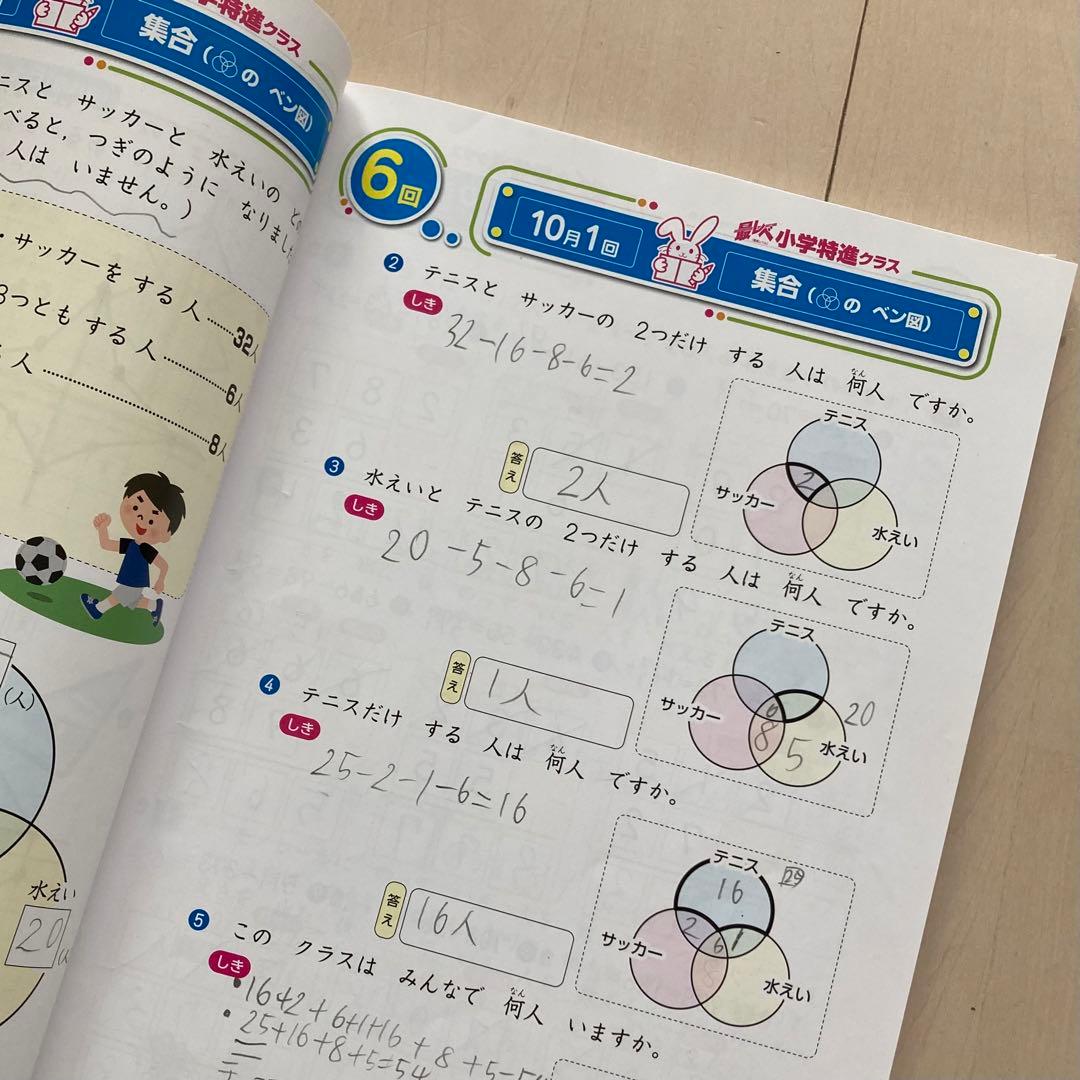 小学特進クラス
集合(の ベン図)
ニスと サッカーと 水えいの
べると,つぎのように なりました
人は いません。)
・サッカーを する 人……32人
3つとも する 人……6人
人……8人
(人)
水えい
20
6回
10月1回
最レベ 小学特進クラス
集合(の ベン図)
2 テニスと サッカーの 2つだけ する 人は 何人 ですか。
なん
しき
32-16-8-6=2
答え
2人
テニス
サッカー
水えい
2
3 水えいと テニスの 2つだけ する 人は 何人 ですか。
なん
しき
20-5-8-6=1
答え
1人
テニス
サッカー
水えい
6
8
5
20
4 テニスだけ する 人は 何人 ですか。
なん
しき
25-2-1-6=16
答え
16人
テニス
サッカー
水えい
16
2
6
1
8
5 この クラスは みんなで 何人 いますか。
なん
しき
・16+2+6+1+16+8+5=54
・25+16+8+5=54